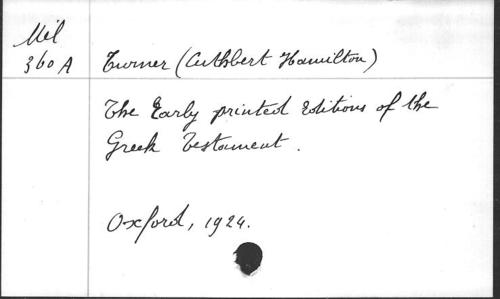 Mil
360 A
Turner (Cuthbert Hamilton)
The Early printed Editions of the
Greek Testament.
Oxford, 1924.